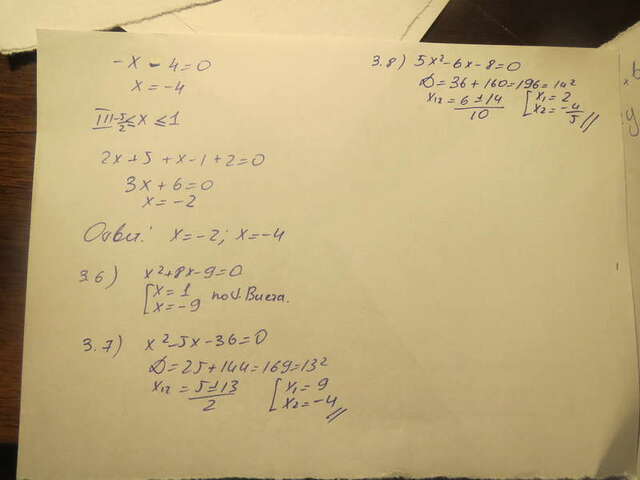 -x - 4 = 0
x = -4
III -5/2 ≤ x ≤ 1
2x + 5 + x - 1 + 2 = 0
3x + 6 = 0
x = -2
Ответ: x = -2; x = -4
3.6) x² + 8x - 9 = 0
[x = 1
x = -9 по т. Виета.
3.7) x² - 5x - 36 = 0
D = 25 + 144 = 169 = 13²
x₁₂ = (5 ± 13)/2 [x₁ = 9
x₂ = -4 //
3.8) 5x² - 6x - 8 = 0
D = 36 + 160 = 196 = 14²
x₁₂ = (6 ± 14)/10 [x₁ = 2
x₂ = -4/5 //